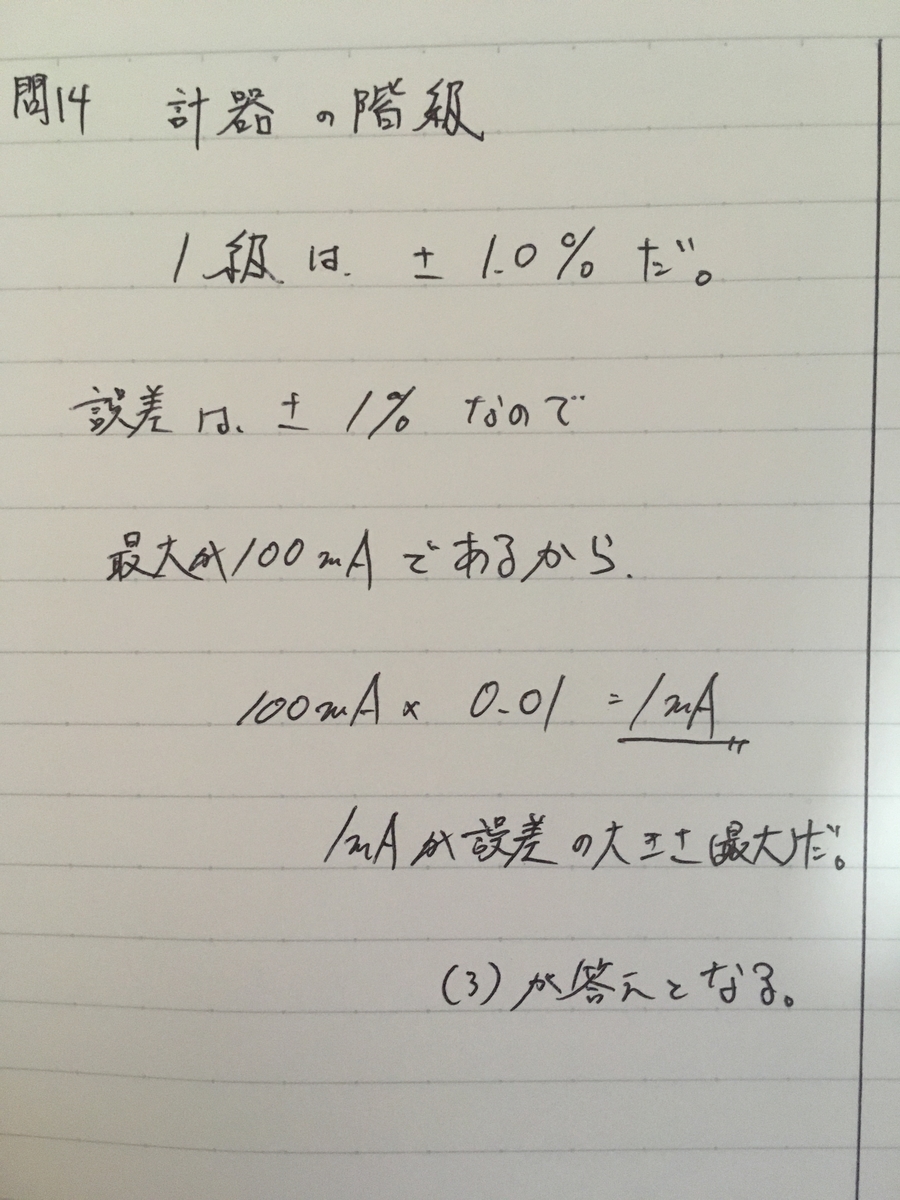 問14 計器の階級
1級は、± 1.0% だ。
誤差は、± 1% なので
最大が100mAであるから、
100mA × 0.01 = 1mA
1mAが誤差の大きさ(最大)だ。
(3)が答えとなる。